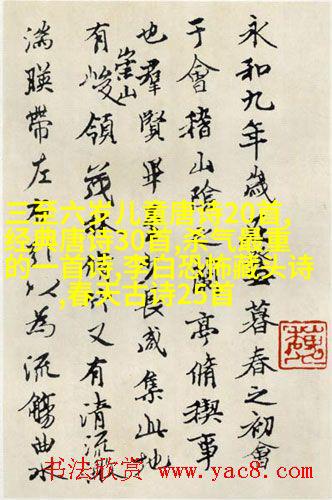 永和九年歲暮春之初會
于會稽山陰之蘭亭脩稧事
也羣賢畢長咸集此地
有崇山峻領茂林又有清流激
湍暎帶左右引以為流觴曲水
三至六岁儿童唐诗20首,
经典唐诗30首,杀气最重
的一首诗,李白恐怖藏头诗
,春天古诗25首
书法欣赏 www.yac8.com